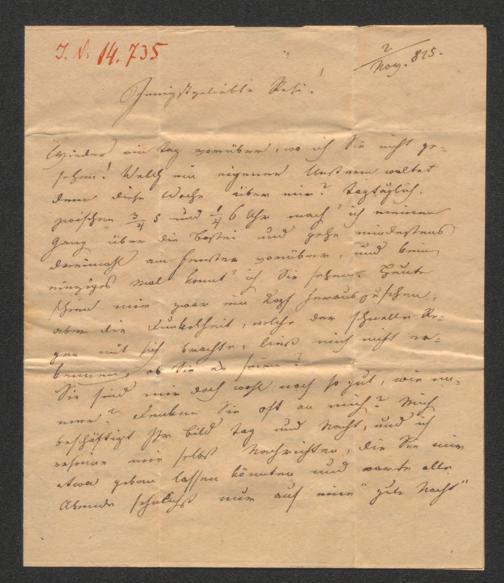 J. N. 14.735
2/Nov. 825.
Innigstgeliebte Resi!
Wieder ein Tag vorüber, wo ich Sie nicht ge-
sehen! Welch ein eigener Unstern waltet
denn diese Woche über mir? Tagtäglich,
zwischen 3/4 5 und 1/4 6 Uhr mach' ich meinen
Gang über die Bastei und gehe mindestens
dreimahl am Fenster vorüber, und kein
einziges Mal konnt' ich Sie sehen. Heute
schien mir zwar ein Kopf herauszusehen,
aber die Dunkelheit, welche der schnelle Re-
gen mit sich brachte, ließ mich nicht er-
kennen, ob Sie es seien?
Sie sind mir doch wohl noch so gut, wie im-
mer? Denken Sie oft an mich? Mich
beschäftigt Ihr Bild Tag und Nacht, und ich
mir selbst Nachrichten, die Sie mir
etwa geben lassen könnten und warte alle
Abende sehnlichst nur auf eine "gute Nacht"